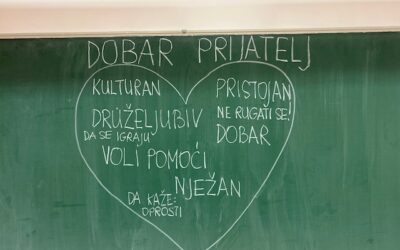 DOBAR PRIJATELJ
KULTURAN
PRISTOJAN
DRUŽELJUBIV
NE RUGATI SE!
DA SE IGRAJU
DOBAR
VOLI POMOĆI
NJEŽAN
DA KAŽE:
OPROSTI